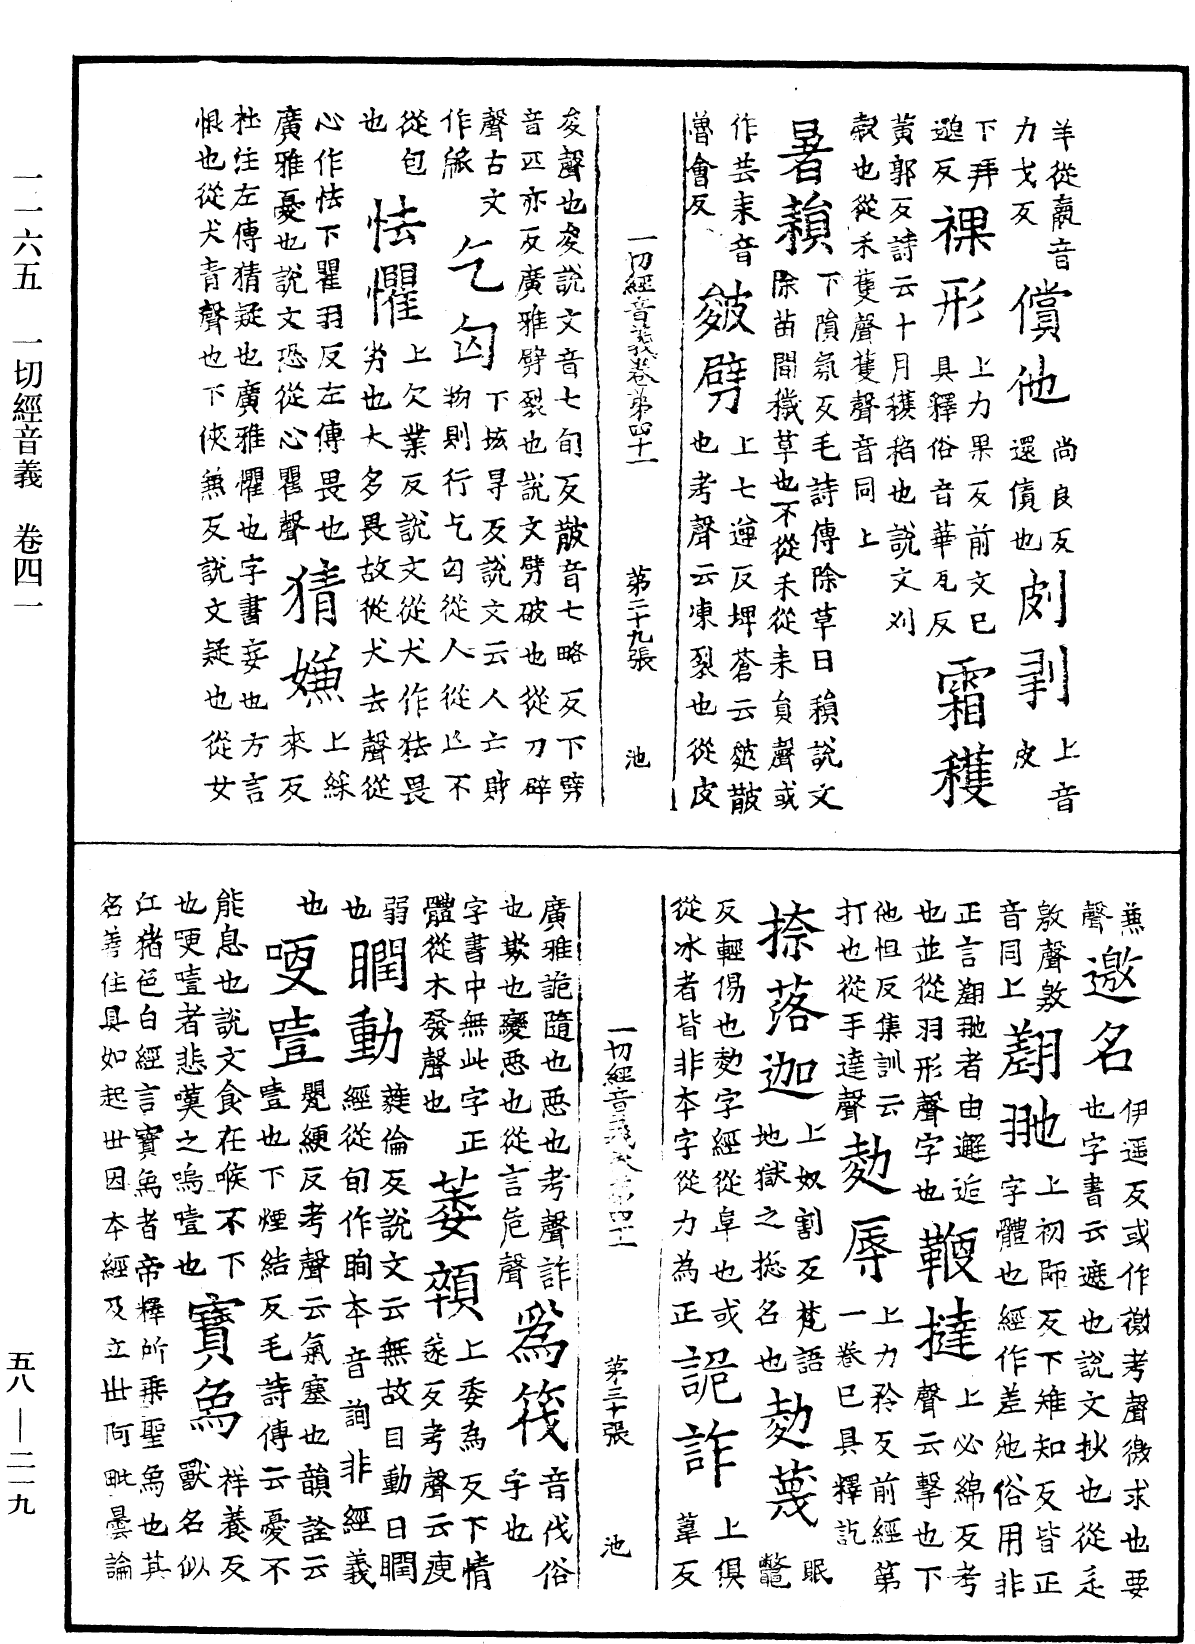 羊從羸音
力戈反
償他
尚良反
還債也
㓟剝
上音
皮
下拜
邈反
裸形
上力果反前文已
具釋俗音華瓦反
霜穫
黃郭反詩云十月穫稻也說文刈
穀也從禾蒦聲蒦聲音同上
暑䅖
下隕氛反毛詩傳除草曰䅖說文
除苗間穢草也不從禾從耒員聲或
作芸耒音
魯會反
皴劈
上七遵反埤蒼云皴皵
也考聲云凍裂也從皮
一切經音義卷第四十一 第二十九張 池
夋聲也夋說文音七旬反皵音七略反下劈
音匹亦反廣雅劈裂也說文劈破也從刀辟
聲古文
作
乞匃
下垓㝵反說文云人亡財
物則行乞匃從人從亡不
從包
也
怯懼
上欠業反說文從犬作㹤畏
劣也犬多畏故從犬去聲從
心作怯下瞿羽反左傳畏也
廣雅憂也說文恐從心瞿聲
猜嫌
上綵
來反
杜注左傳猜疑也廣雅懼也字書妄也方言
恨也從犬青聲也下俠兼反說文疑也從女
兼
聲
邀名
伊遥反或作徼考聲徼求也要
也字書云遮也說文抄也從辵
敫聲敫
音同上
翽翐
上初師反下雉知反皆正
字體也經作差池俗用非
正言翽翐者由邂逅
也並從羽形聲字也
鞭撻
上必綿反考
聲云擊也下
他怛反集訓云
打也從手達聲
勀辱
上力矜反前經第
一卷已具釋訖
捺落迦
上奴割反梵語
地獄之捴名也
勀蔑
眠
鼈
反輕傷也勀字經從阜也或
從冰者皆非本字從力為正
詭詐
上俱
葦反
一切經音義卷第四十一 第三十張 池
廣雅詭隨也惡也考聲詐
也欺也變惡也從言危聲
為筏
音伐俗
字也
字書中無此字正
體從木發聲也
萎顇
上委為反下情
遂反考聲云瘦
弱
也
瞤動
蕤倫反說文云無故目動曰瞤
經從旬作眴本音詢非經義
也
哽噎
甖綆反考聲云氣塞也韻詮云
噎也下煙結反毛詩傳云憂不
能息也說文食在喉不下
也哽噎者悲嘆之嗚噎也
寶象
祥養反
獸名似
江猪色白經言寶象者帝釋所乘聖象也其
名善住具如起世因本經及立世阿毗曇論
一一六五 一切經音義 卷四一
五八—二一九